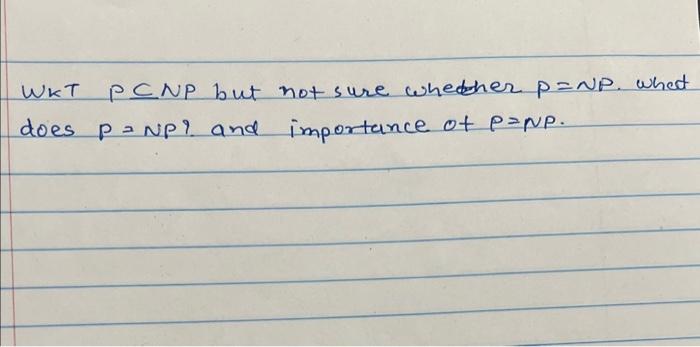 WKT P ⊆ NP but not sure whether P = NP. what
does P = NP? and importance of P = NP.